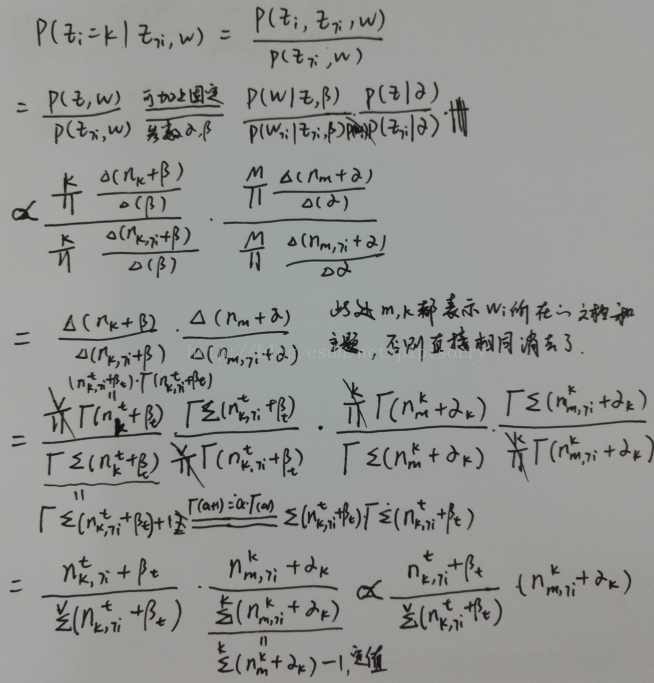 P(z_i=k | z_¬i, w) = P(z_i, z_¬i, w) / P(z_¬i, w)
= P(z,w) / P(z_¬i,w) 可加上固定参数α,β P(w|z,β) / P(w_¬i|z_¬i,β) · P(z|α) / P(z_¬i|α) ·
∝ ∏^K Δ(n_k+β)/Δ(β) / ∏^K Δ(n_k,¬i+β)/Δ(β) · ∏^M Δ(n_m+α)/Δ(α) / ∏^M Δ(n_m,¬i+α)/Δα
= Δ(n_k+β) / Δ(n_k,¬i+β) · Δ(n_m+α) / Δ(n_m,¬i+α) 此处m,k都表示w_i所在的文档和
主题 否则直接相同消去了.
(n_k,¬i^t+β_t)·Γ(n_k,¬i^t+β_t)
=
= ∏^V Γ(n_k^t+β_t) / Γ∑(n_k^t+β_t) · Γ∑(n_k,¬i^t+β_t) / ∏^V Γ(n_k,¬i^t+β_t) · ∏^K Γ(n_m^k+α_k) / Γ∑(n_m^k+α_k) · Γ∑(n_m,¬i^k+α_k) / ∏^K Γ(n_m,¬i^k+α_k)
=
Γ∑(n_k,¬i^t+β_t)+1 Γ(a+1)=a·Γ(a) ∑(n_k,¬i^t+β_t)·Γ∑(n_k,¬i^t+β_t)
= n_k,¬i^t+β_t / ∑^V(n_k,¬i^t+β_t) · n_m,¬i^k+α_k / ∑^K(n_m,¬i^k+α_k) ∝ n_k,¬i^t+β_t / ∑^V(n_k,¬i^t+β_t) (n_m,¬i^k+α_k)
=
∑^K(n_m^k+α_k)-1,定值